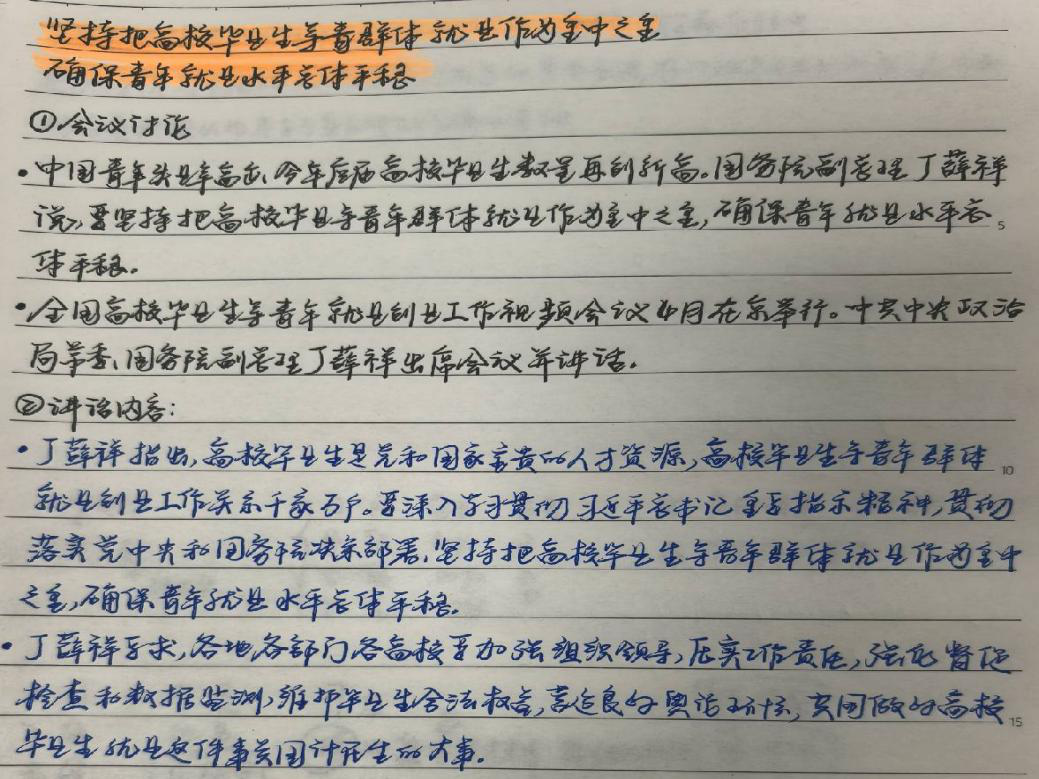 坚持把高校毕业生等青年群体就业作为重中之重
确保青年就业水平总体平稳
①会议讨论
•中国青年失业率高企、今年应届高校毕业生数量再创新高。国务院副总理丁薛祥
说,要坚持把高校毕业等青年群体就业作为重中之重,确保青年就业水平总
体平稳。
•全国高校毕业生等青年就业创业工作视频会议4月在京举行。中共中央政治
局常委、国务院副总理丁薛祥出席会议并讲话。
②讲话内容:
•丁薛祥指出,高校毕业生是党和国家宝贵的人才资源,高校毕业生等青年群体
就业创业工作关系千家万户。要深入学习贯彻习近平总书记重要指示精神,贯彻
落实党中央和国务院决策部署,坚持把高校毕业生等青年群体就业作为重中
之重,确保青年就业水平总体平稳。
•丁薛祥要求,各地各部门各高校要加强组织领导,压实工作责任,强化督促
检查和数据监测,维护毕业生合法权益,营造良好舆论环境,共同做好高校
毕业生就业这件事关国计民生的大事。
5
10
15